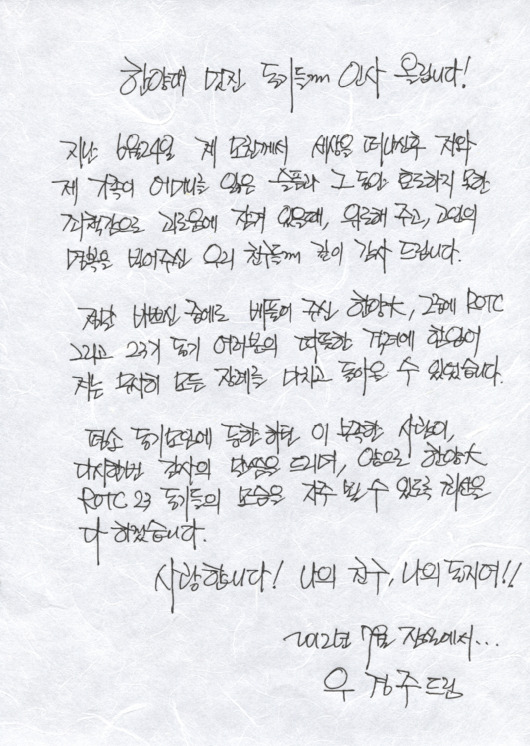 한양대 멋진 동기들께 인사 올립니다!
지난 6월24일 제 모친께서 세상을 떠나신후 저와
제 가족이 어머니를 잃은 슬픔과 그 동안 효도하지 못한
죄책감으로 괴로움에 잠겨 있을때, 위로해 주고, 고인의
명복을 빌어주신 우리 친구들께 깊이 감사 드립니다.
정말 바쁘신 중에도 베풀어 주신 한양大, 그중에 ROTC
그리고 23기 동기 여러분의 따뜻한 격려에 힘입어
저는 무사히 모든 장례를 마치고 돌아올 수 있었습니다.
평소 동기모임에 등한하던 이 부족한 사람이,
다시한번 감사의 말씀을 드리며, 앞으로 한양大
ROTC 23 동기들의 모습을 자주 뵐 수 있도록 최선을
다 하겠습니다.
사랑합니다! 나의 친구, 나의 동지여!!
2012년 7월 에서...
우 경주 드림